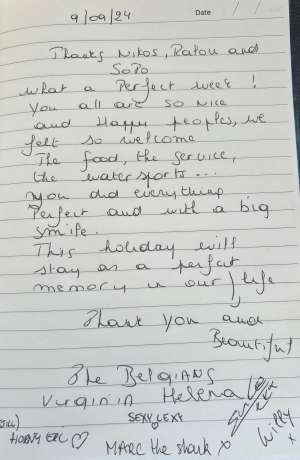 9/09/24
Date / /
Thanks Nikos, Ratou and
SoPo
what a Perfect week!
You all are so nice
and Happy peoples, we
felt so welcome
The food, the service,
the watersports...
you did everything
Perfect and with a big
smile.
This holiday will
stay as a perfect
memory in our life
Thank you and
Beautiful
The Belgians
Virginia Helena
SEXY LEXY
HORNY ERIC
MARC the shark x
Willy
x